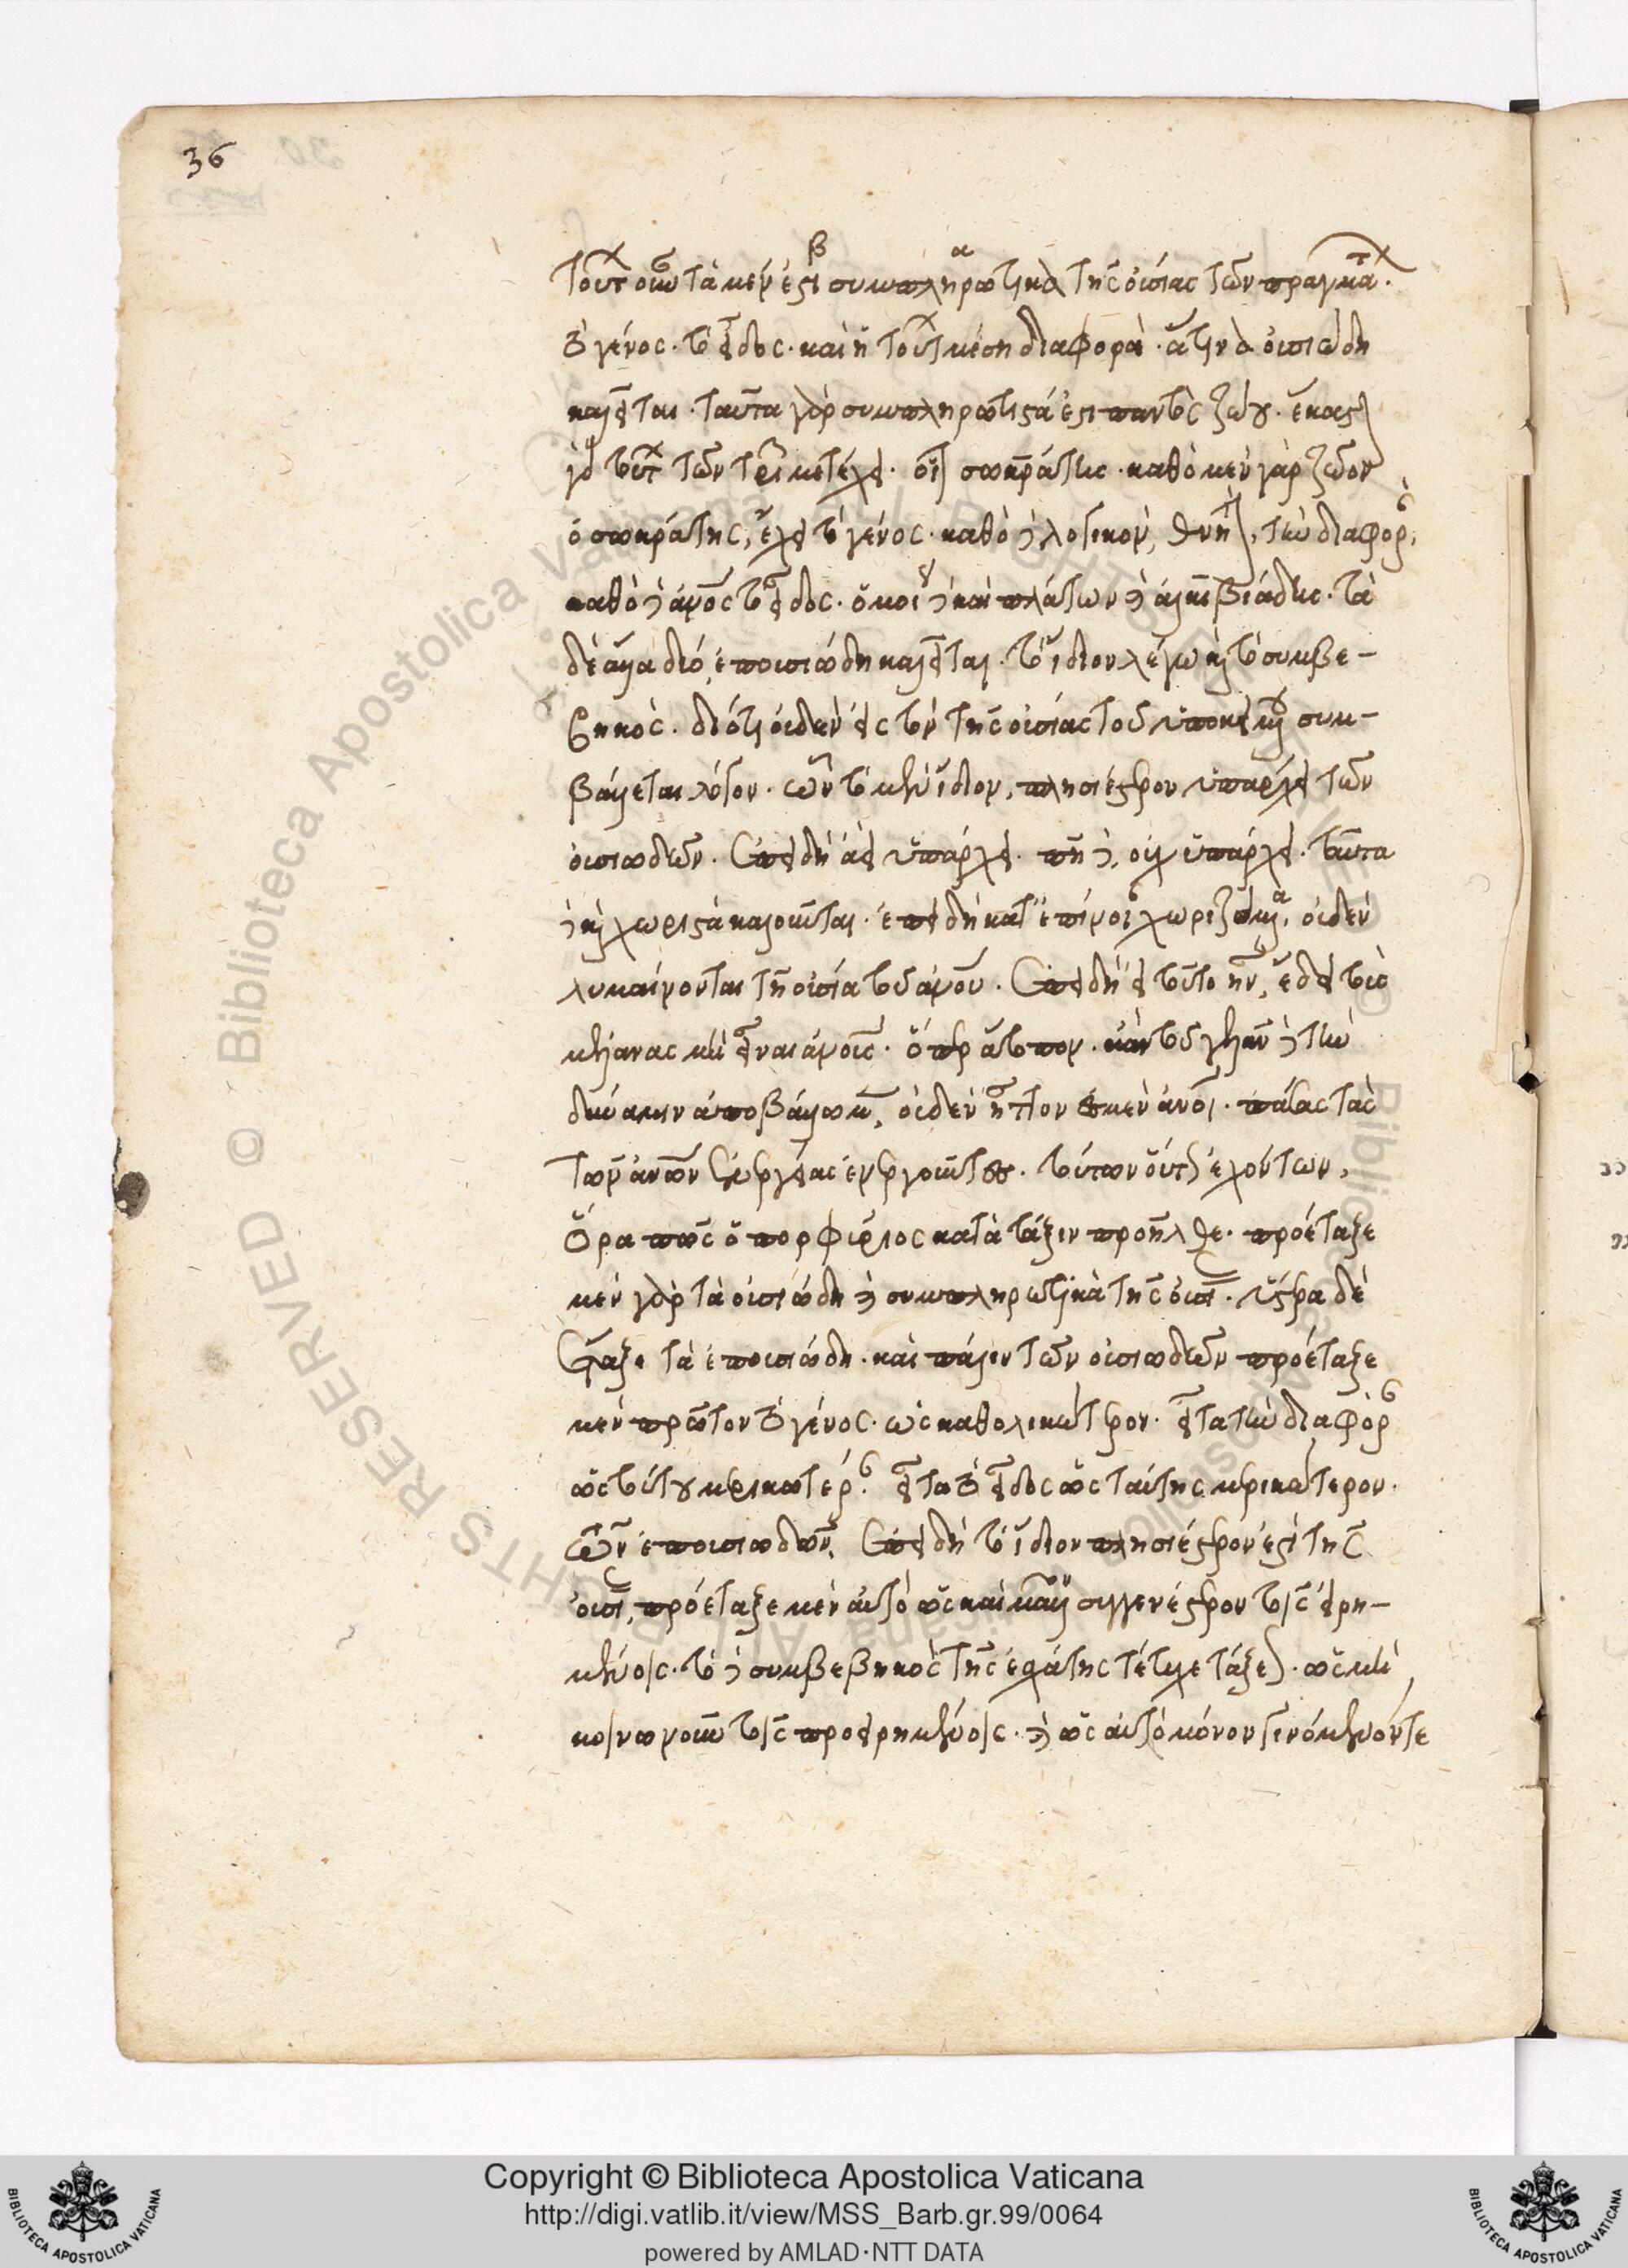 36
τούτων οὖν τὰ μέν ἐστι συμπληρωτικὰ τῆς οὐσίας τῶν πραγμάτων.
τὸ γένος· τὸ εἶδος· καὶ ἡ τούτων μέση διαφορά· ἅτινα οὐσιώδη
καλεῖται· ταῦτα γὰρ συμπληρωτικά ἐστι παντὸς ζώου· ἕκαστον
γὰρ τούτων τῶν τριῶν μετέχει· οἷον σωκράτης· καθὸ μὲν γὰρ ζῶον
ὁ σωκράτης, ἔχει τὸ γένος· καθὸ δὲ λογικὸν, θνητὸν, τὴν διαφοράν,
καθὸ δὲ ἄνθρωπος τὸ εἶδος· ὁμοίως δὲ καὶ πλάτων καὶ ἀλκιβιάδης· τὰ
δὲ ἄλλα δύο, ἐπουσιώδη καλεῖται· τὸ ἴδιον λέγω καὶ τὸ συμβε-
βηκός· διότι οὐδὲν εἰς τὸν τῆς οὐσίας τοῦ ὑποκειμένου συμ-
βάλλεται λόγον· ὧν τὸ μὲν ἴδιον, πλησιέστερον ὑπάρχει τῶν
οὐσιωδῶν· ἐπειδὴ ἀεὶ ὑπάρχει· πῆ δὲ, οὐχ ὑπάρχει· ταῦτα
δὲ καὶ χωριστὰ καλοῦνται· ἐπειδὴ κατ' ἐπίνοιαν χωριζόμενα, οὐδὲν
λυμαίνονται τῇ οὐσίᾳ τοῦ ἀνθρώπου· ἐπειδὴ εἰ τοῦτο ἦν, ἔδει τοὺς
μὴ εἶναι ἀνθρώπους· ὅπερ ἄτοπον· κἂν τοῦ γελᾶν δὲ τὴν
δύναμιν ἀποβάλωμεν, οὐδὲν ἧττον ἐσμὲν ἄνθρωποι· πάσας τὰς
τῶν ἀνθρώπων ἐνεργείας ἐνεργοῦντες· τούτων οὕτως ἐχόντων,
ὅρα πῶς ὁ πορφύριος κατὰ τάξιν προῆλθε· προέταξε
μὲν γὰρ τὰ οὐσιώδη καὶ συμπληρωτικὰ τῆς οὐσίας· ὕστερα δὲ
ἔταξε τὰ ἐπουσιώδη· καὶ πάλιν τῶν οὐσιωδῶν προέταξε
μὲν πρῶτον τὸ γένος· ὡς καθολικώτερον· εἶτα τὴν διαφοράν
ὡς τούτου μερικωτέραν· εἶτα τὸ εἶδος ὡς ταύτης μερικώτερον·
τῶν ἐπουσιωδῶν, ἐπειδὴ τὸ ἴδιον πλησιέστερόν ἐστι τῆς
οὐσίας, προέταξε μὲν αὐτὸ ὡς καὶ μᾶλλον συγγενέστερον τοῖς εἰρη-
μένοις· τὸ δὲ συμβεβηκὸς τῆς ἐσχάτης τέτυχε τάξεως· ὡς μὴ
κοινωνοῦν τοῖς προειρημένοις· καὶ ὡς αὐτὸ μόνον γινόμενόν τε
Copyright © Biblioteca Apostolica Vaticana
http://digi.vatlib.it/view/MSS_Barb.gr.99/0064
powered by AMLAD·NTT DATA